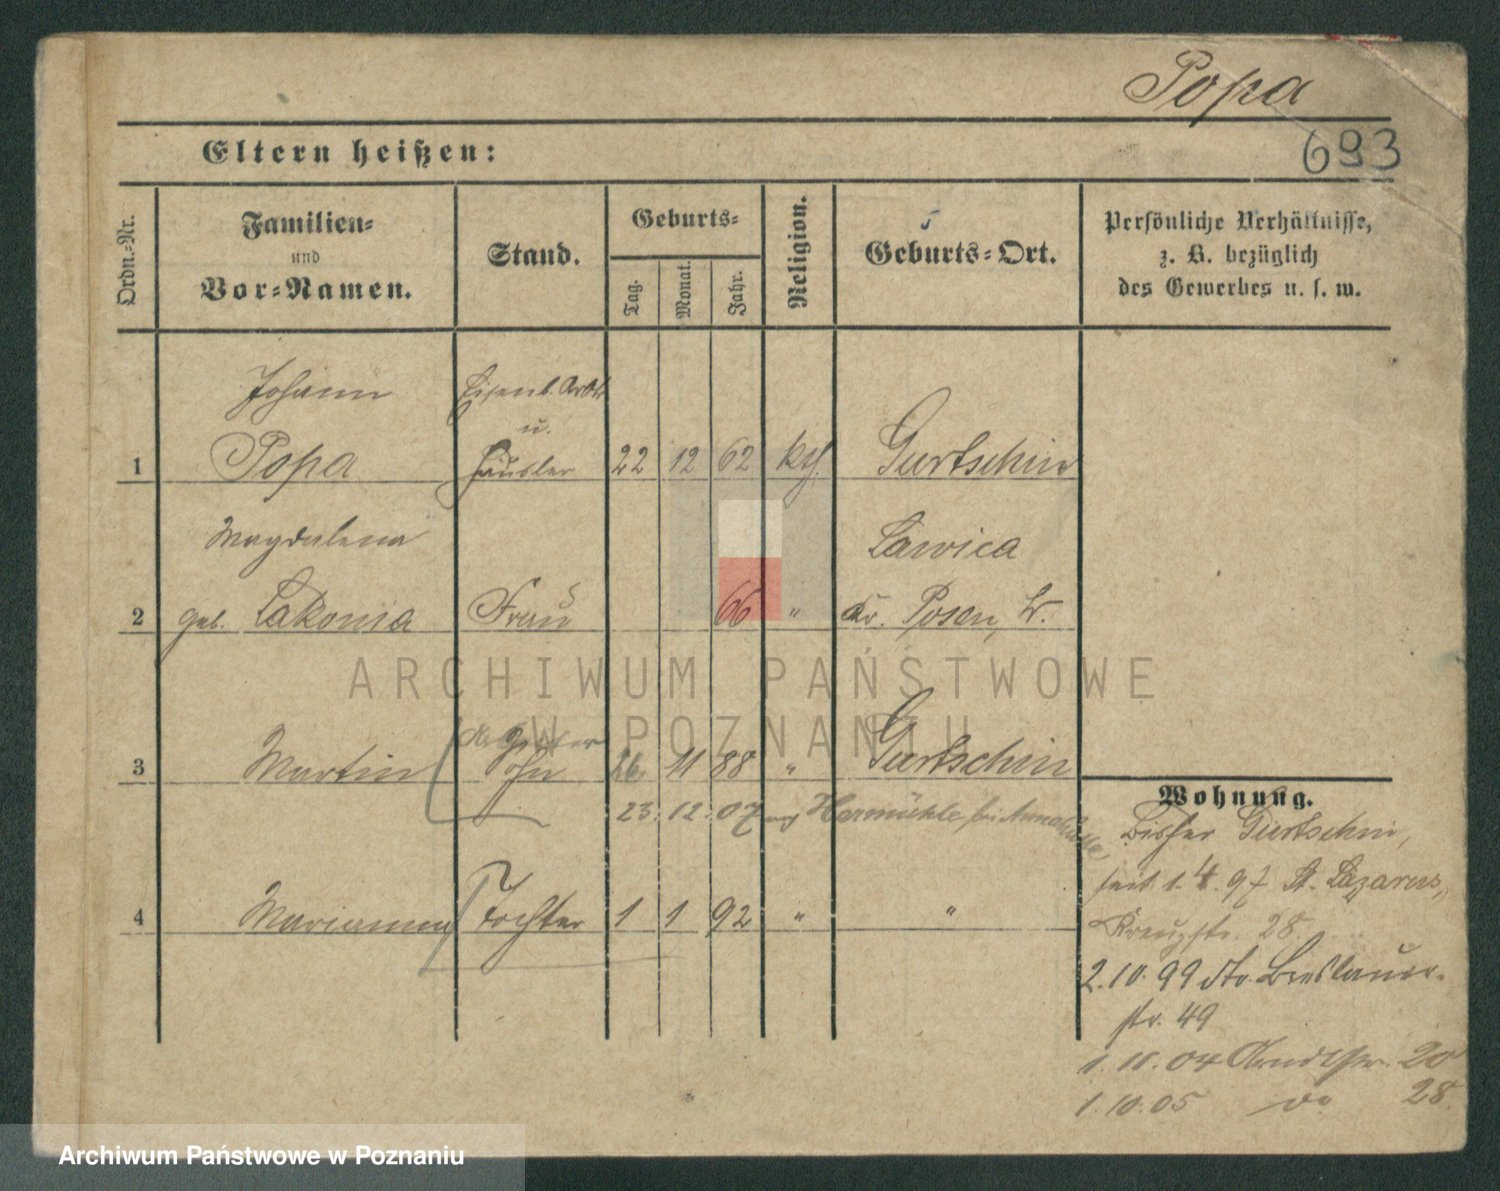 Popa
693
Eltern heißen:
Ordn.-Nr.
Familien-
und
Vor-Namen.
Stand.
Geburts-
Tag.
Monat.
Jahr.
Religion.
Geburts-Ort.
Persönliche Verhältnisse,
z. B. bezüglich
des Gewerbes u. s. w.
Johann
Eisenb. Arbtr
u.
1 Popa Häusler 22 12 62 kth Gurtschin
Magdalena Lawica
2 geb. Lakoma Frau 66 " Kr. Posen, W.
3 Martin Sohn 26. 11 88 " Gurtschin
23. 12. 07 Harmühle bei
4 Marianna Tochter 1 1 92 " "
Wohnung.
Bisher Gurtschin,
seit 1. 4. 97 St. Lazarus,
Kreuzstr. 28.
2. 10. 99 dto. Breslauer-
str. 49
1. 11. 04 Arndtstr. 20
1. 10. 05 do 28.
ARCHIWUM PAŃSTWOWE
W POZNANIU
Archiwum Państwowe w Poznaniu